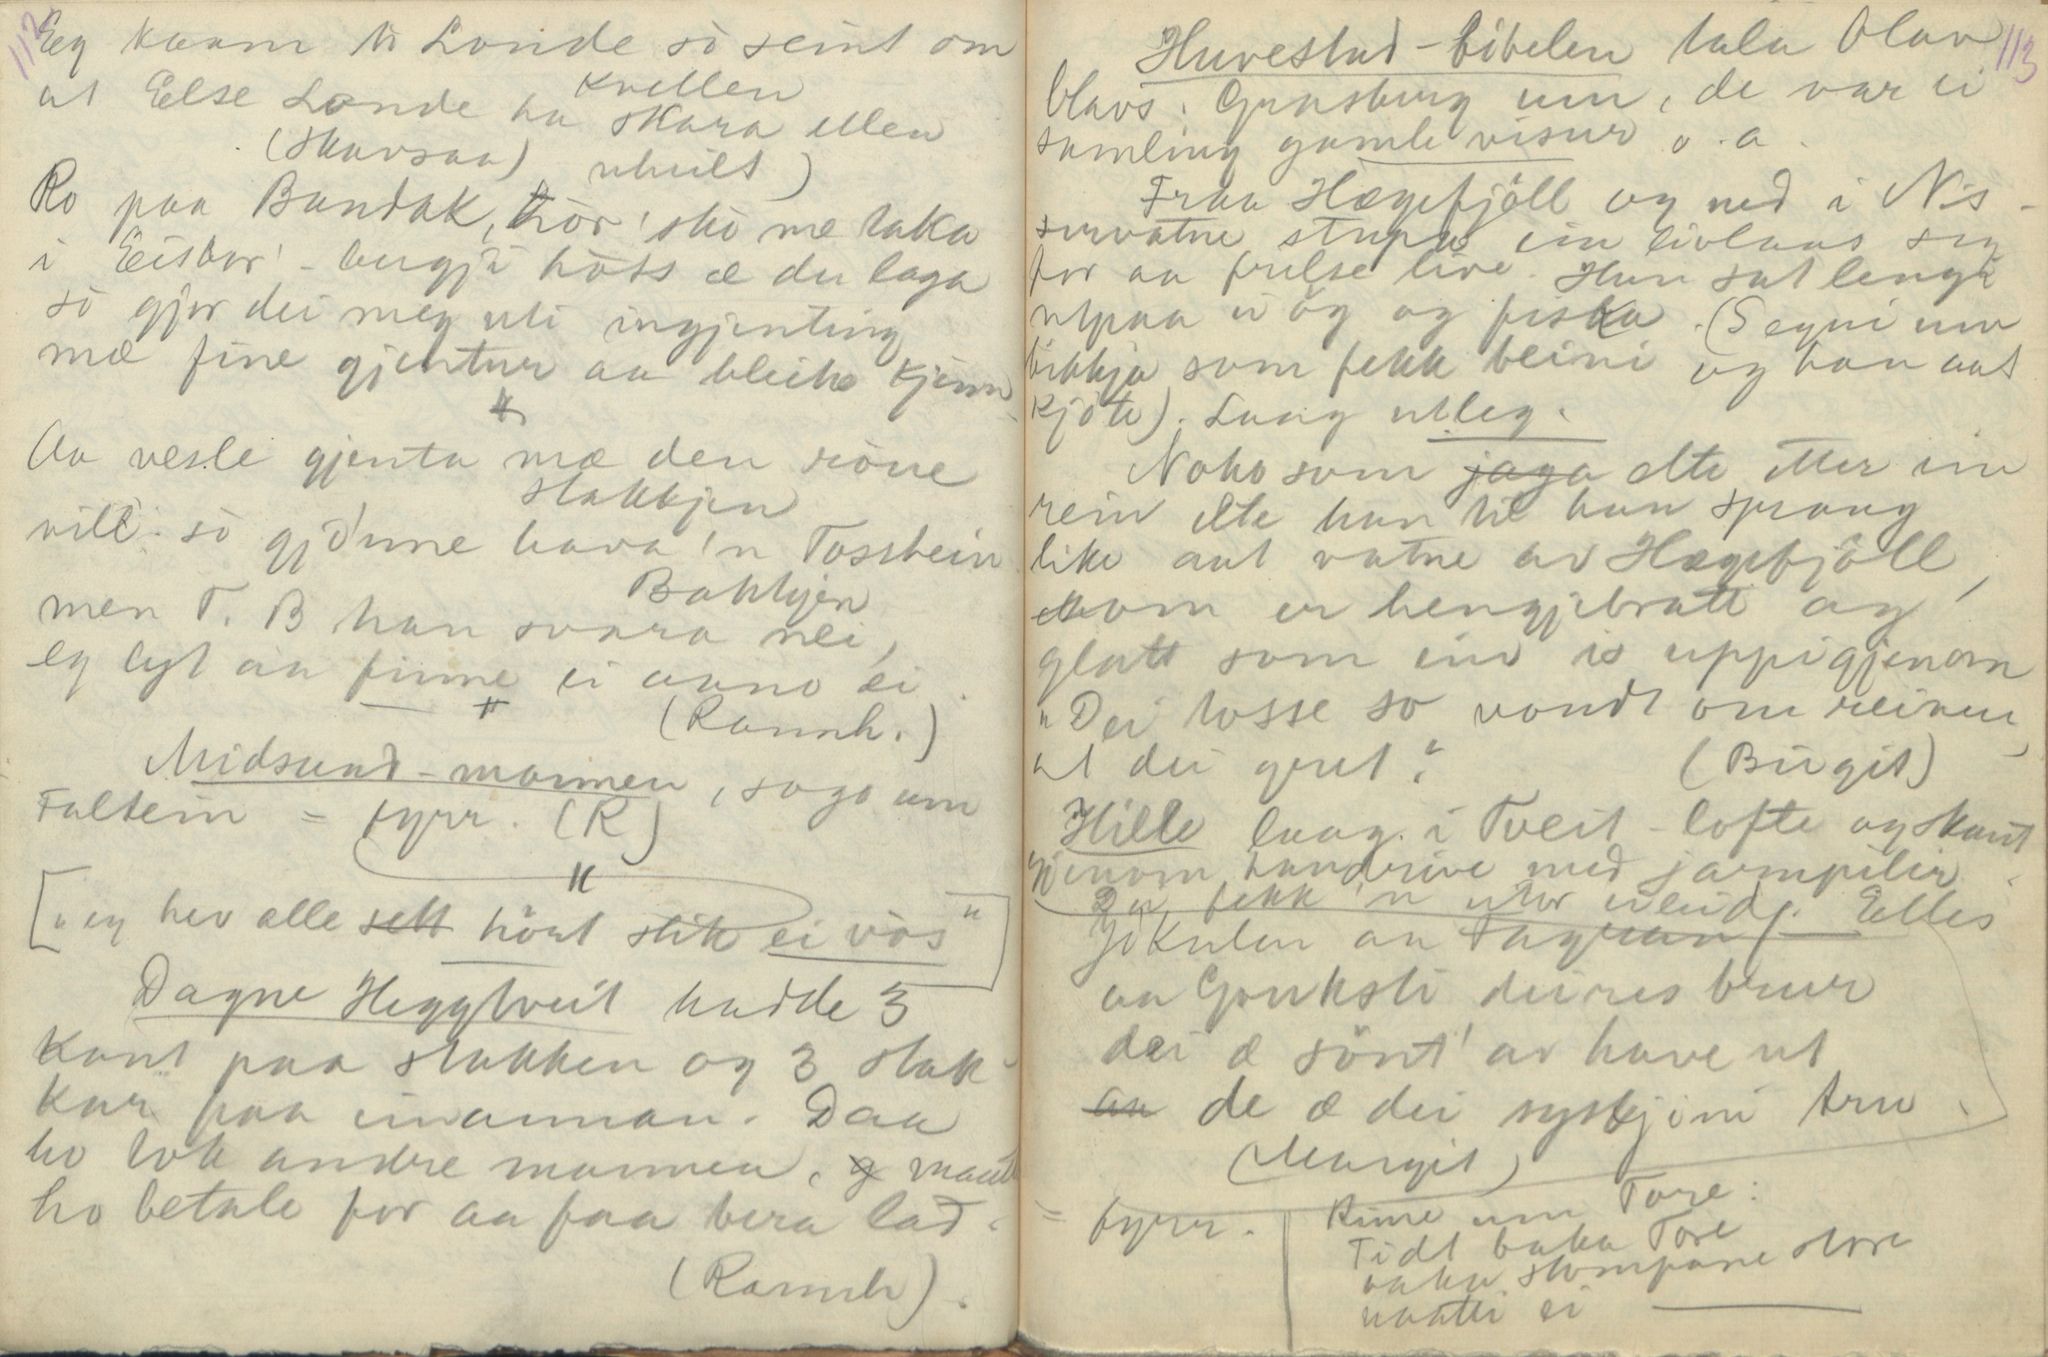 112
Eeg kaam ti Londe so seint om
kvellen
at Eelse Londe ha skara ellen
(skarsaa) uheilt)
Ro paa Bandak, hòr' sko me taka
i Eisbor'-bergji hòss æ du laga
so gjer dei meg uti ingjenting
mæ fine gjentur aa bleike kjinn
"
Aa vesle gjenta mæ den rione
stakkjen
vill so gjönne hava 'n Tosstein
Bakkjen
men T. B han svara nei,
eg lyt aa finne ei aano ei.
" (Rannh.)
Midsund-mannen, soga um
Faltein = fyrr. (R)
"
["eg hev alle sett höyrt slik ei vòs"
Dagne Heggtveit hadde 3
kant paa stakken og 3 stak-
kar paa einannan. Daa
ho tok andre mannen, og maatte
ho betale for aa faa bera lad.
(Rannh).
113
Huvestad-bibelen tala Olav
Olavs. Grasberg um, de var ei
samling gamle visur o.a.
Fraa Hægefjöll og ned i Nis-
servatne stupa ein livlaus seg
for aa frelse live. Han sat lengji
utpaa ei öy og fiska. (Segni um
bikkja som fekk beini og han aat
kjöte). Laag utleg.
Noko som jaga elte etter ein
rein elte han til han sprang
like aat vatne av Hægefjöll,
som er hengjebratt og
glatt som ein is uppigjenom
"Dei tosse so vondt om reinen,
at dei gret." (Birgit)
Hille laag i Tveit-lofte og skaut
gjenom handrive med jarnpilir.
Da fekk 'n utor eileidg. Elles
Jökulen aa Fagran
aa Gonksli deires brur
dei æ sönt' av have ut
aa de æ dei syskjini tru.
(Margit)
= fyrr. Rime um Tore:
Tidt baka Tore
baka stompane store
naatti ei